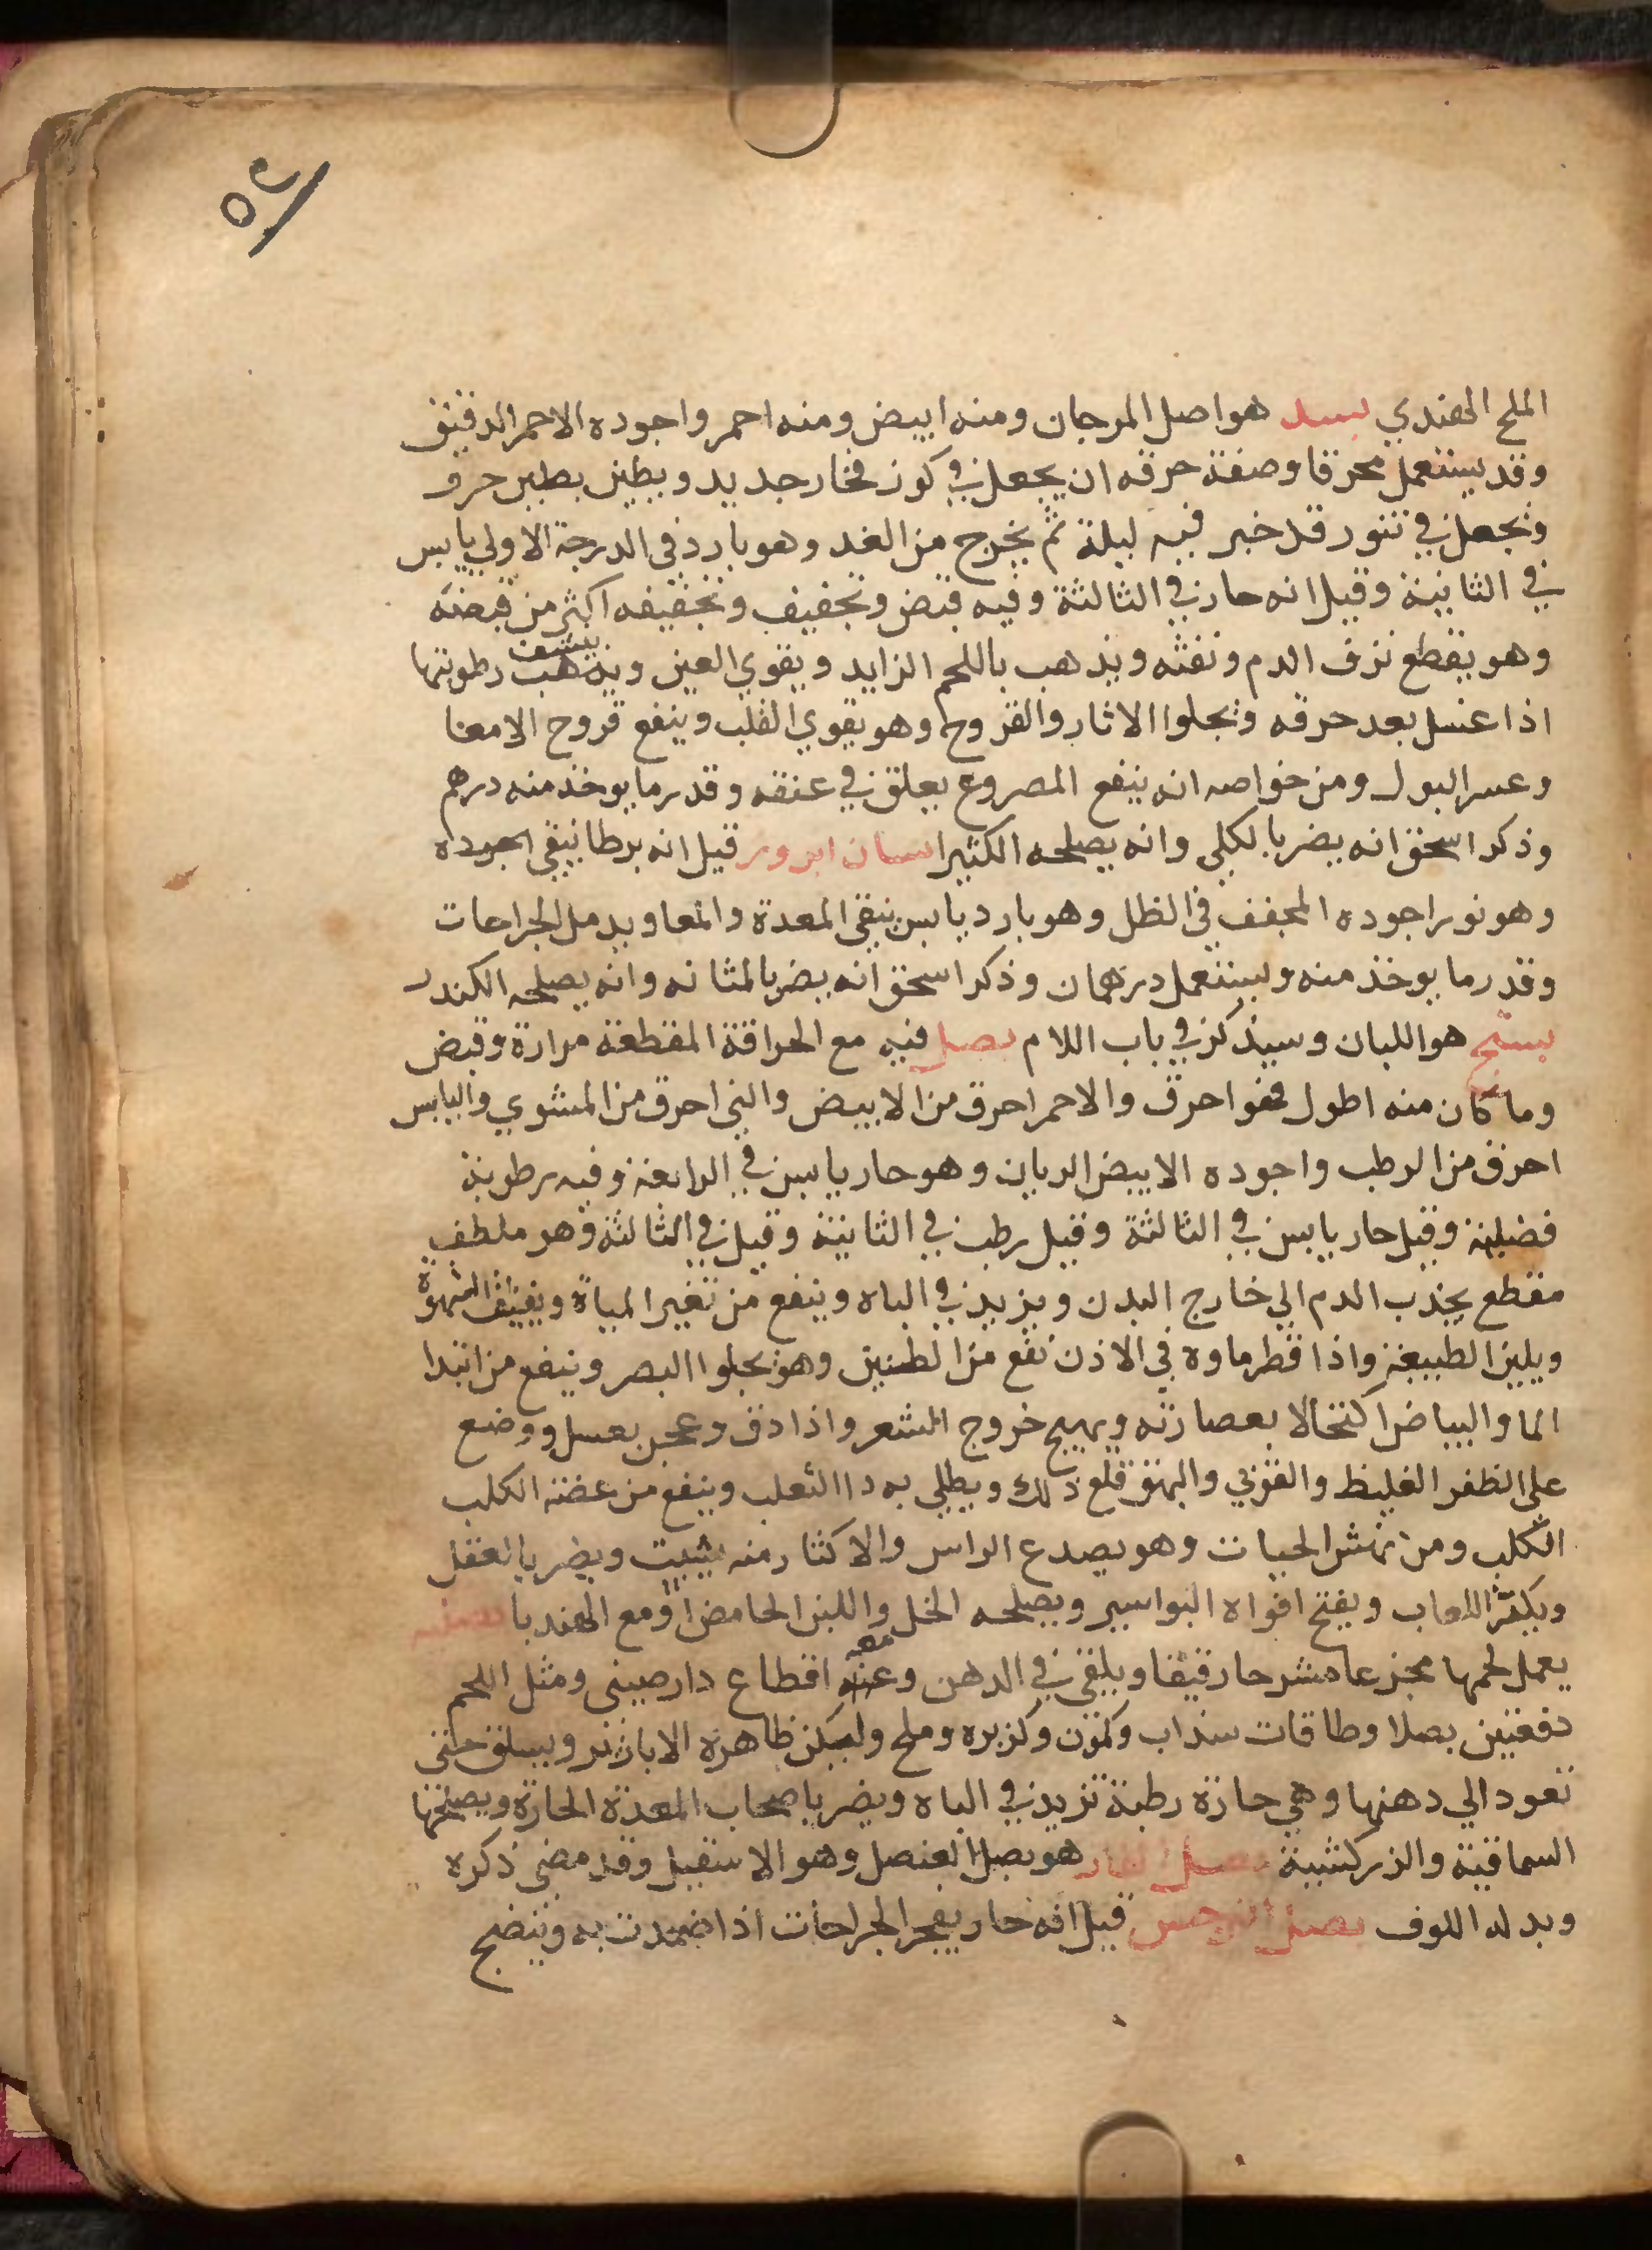 ٥٢
الملح الهندي بسد هو اصل المرجان ومنه ابيض ومنه احمر واجوده الاحمر الدقيق
وقد يستعمل محرقا وصفة حرقه ان يجعل في كوز فخار جديد ويطين بطين حر
ويجعل في تنور قد خبز فيه ليلة ثم يخرج من الغد وهو بارد في الدرجة الاولي يابس
في الثانية وقيل انه حار في الثالثة وفيه قبض وتجفيف وتجفيفه اكثر من قبضه
وهو يقطع نزف الدم ونفثه ويذهب باللحم الزايد ويقوي العين وينشف رطوبتها
اذا غسل بعد حرقه ويجلوا الاثار والقروح وهو يقوي القلب وينفع قروح الامعا
وعسر البول ومن خواصه انه ينفع المصروع يعلق في عنقه وقدر ما يوخذ منه درهم
وذكر اسحق انه يضر بالكلي وانه يصلحه الكثيرا قيل انه برطانيقي
وهو نور اجوده المجفف في الظل وهو بارد يابس ينقي المعدة والمعا ويدمل الجراحات
وقدر ما يوخذ منه ويستعمل درهمان وذكر اسحق انه يضر بالمثانه وانه يصلحه الكندر
بستج هو اللبان وسيذكر في باب اللام بصل فيه مع الحراقة المقطعة مرارة وقبض
وما كان منه اطول فهو احرق والاحمر احرق من الابيض والني احرق من المشوي واليابس
احرق من الرطب واجوده الابيض الريان وهو حار يابس في الرابعة وفيه رطوبة
فضلية وقيل حار يابس في الثالثة وقيل رطب في الثانية وقيل في الثالثة وهو ملطف
مقطع يجذب الدم الي خارج البدن ويزيد في الباه وينفع من تغير المياة ويفتق الشهوة
ويلين الطبيعة واذا قطر ماوه في الاذن نفع من الطنين وهو يجلوا البصر وينفع من ابتدا
الما والبياض اكتحالا بعصارته ويهيج خروج الشعر واذا دق وعجن بعسل ووضع
علي الظفر الغليظ والقوبي والبهق قلع ذلك ويطلي به دا الثعلب وينفع من عضة الكلب
الكلب ومن نهش الحيات وهو يصدع الراس والاكثار منه يثبت ويضر بالعقل
ويكثر اللعاب ويفتح افواه البواسير ويصلحه الخل واللبن الحامض او مع الهندبا بصلية
يعمل لحمها مجزعا مشرحا رقيقا ويلقي في الدهن ومعه اقطاع دارصيني ومثل اللحم
دفعتين بصلا وطاقات سذاب وكمون وكزبره وملح ولتكن ظاهرة الابازير ويسلق حتي
تعود الي دهنها وهي حارة رطبة تزيد في الباه ويضر باصحاب المعدة الحارة ويصلحها
السماقية والزركشية بصل الفار هو بصل العنصل وهو الاسقيل وقد مضي ذكره
وبدله اللوف بصل النرجس قيل انه حار يفجر الجراحات اذا ضمدت به وينضج